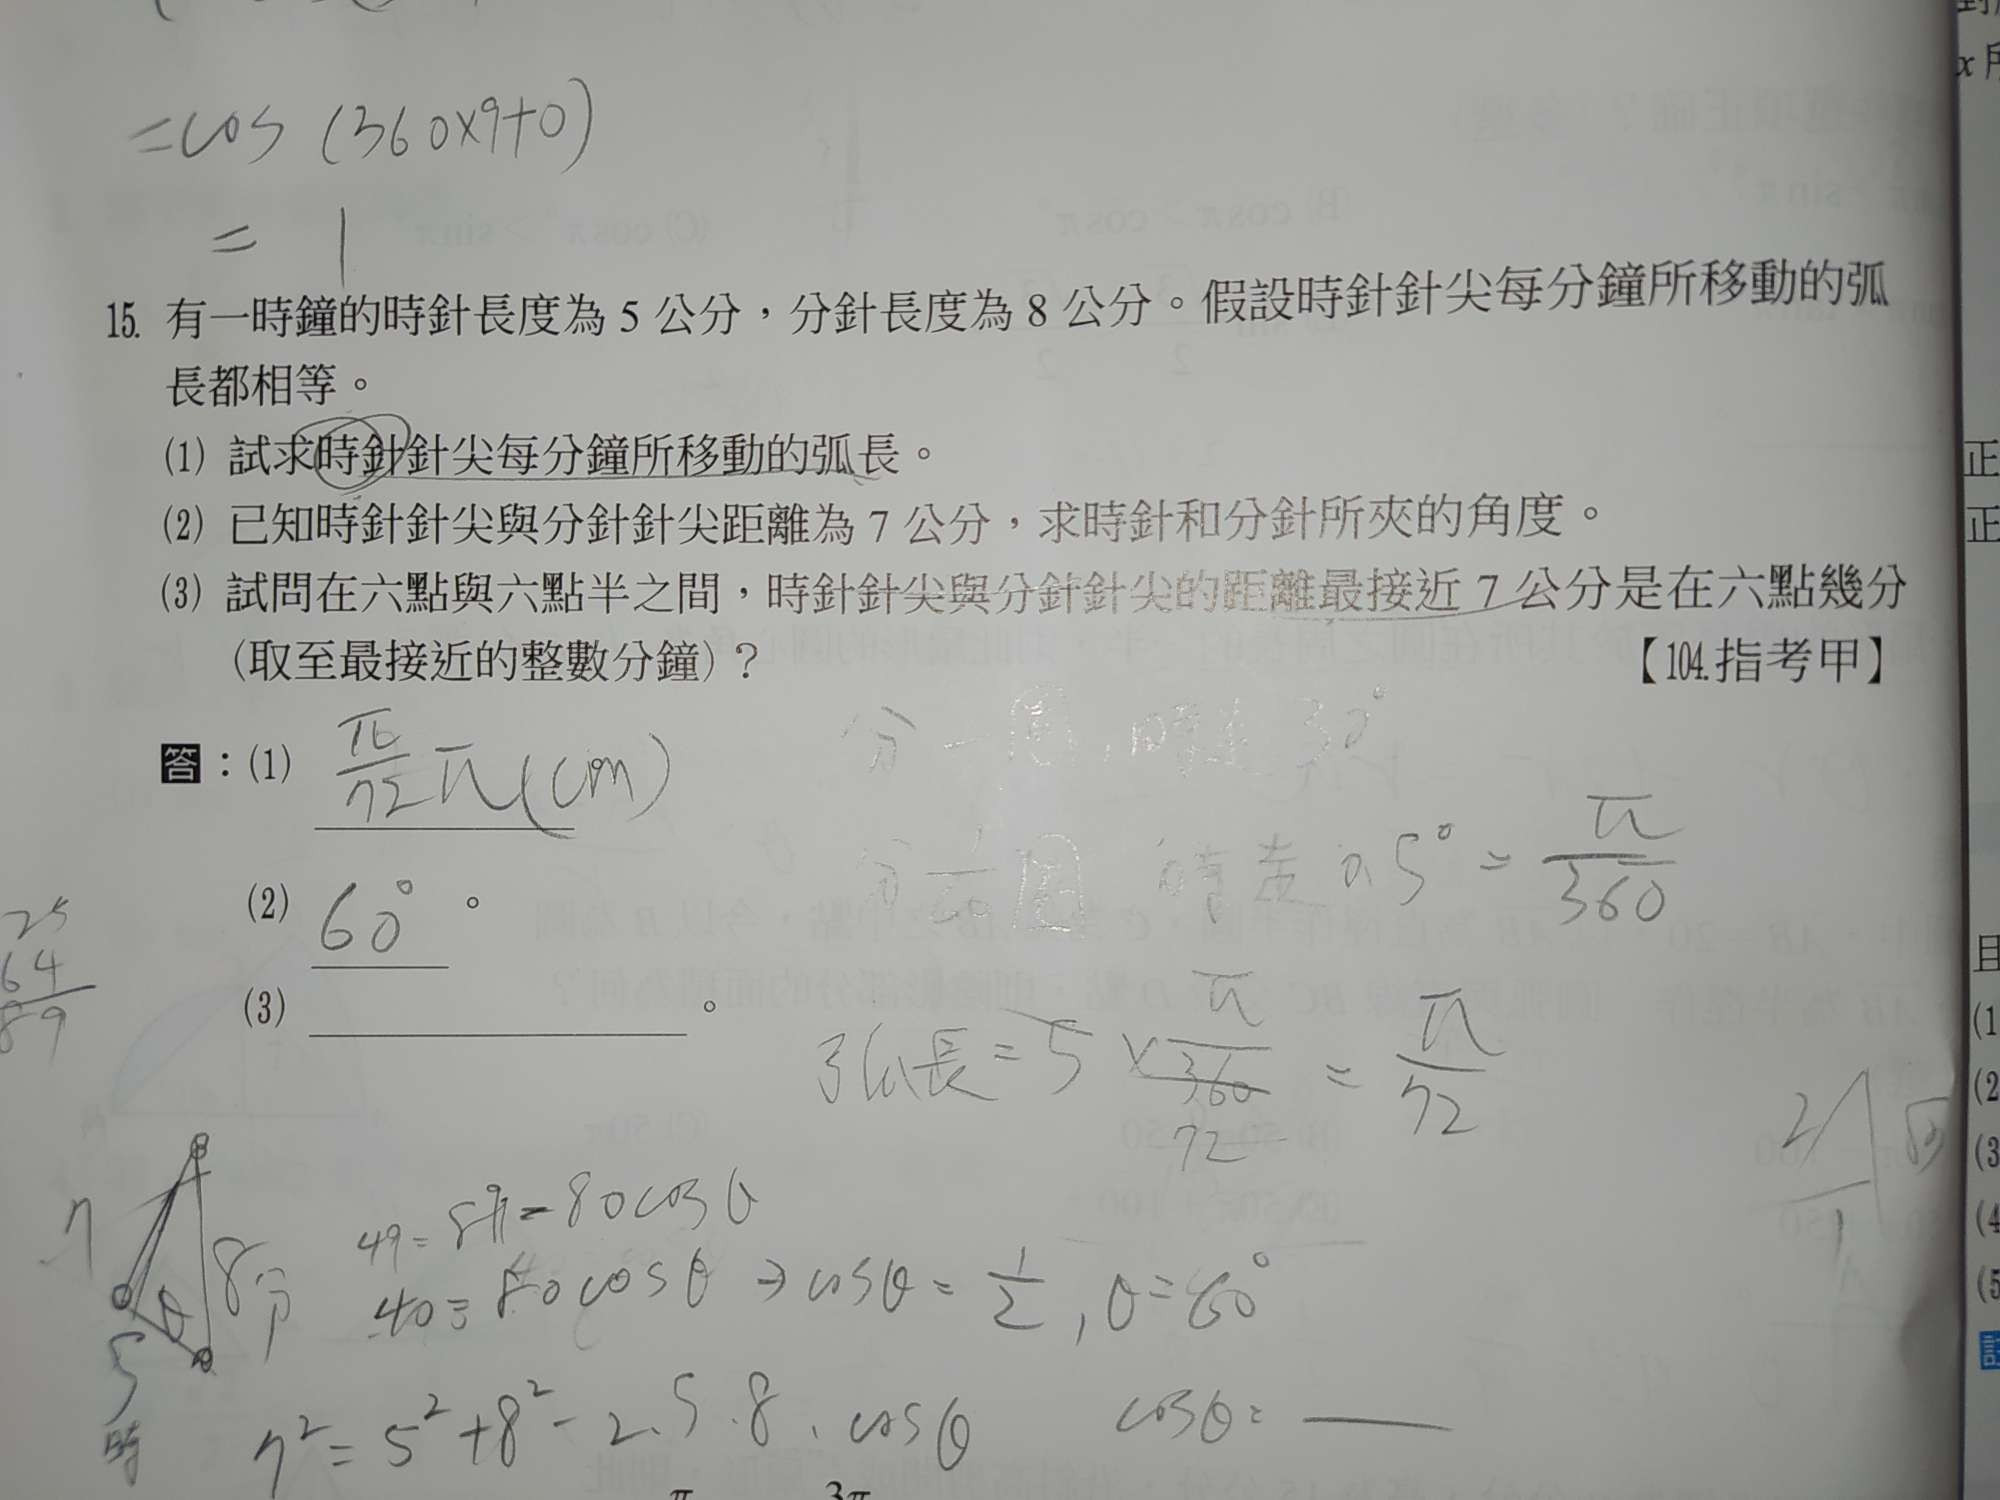 =cos (360×9+0)
= 1
15. 有一時鐘的時針長度為 5 公分，分針長度為 8 公分。假設時針針尖每分鐘所移動的弧
長都相等。
(1) 試求時針針尖每分鐘所移動的弧長。
(2) 已知時針針尖與分針針尖距離為 7 公分，求時針和分針所夾的角度。
(3) 試問在六點與六點半之間，時針針尖與分針針尖的距離最接近 7 公分是在六點幾分
(取至最接近的整數分鐘)？ 【104.指考甲】
分一周，時走 30°
答：(1) π/72 π (cm)
分 1/60 周 時走 0.5° = π/360
(2) 60° 。
25
64
89
(3) 。
弧長 = 5 × π/360 = π/72
72
7 8分 θ 5 時
49 = 89 - 80cosθ
40 = 80cosθ ⇒ cosθ = 1/2 , θ = 60°
7² = 5² + 8² - 2.5.8.cosθ
cosθ =
x 所
正
正
且
(1
(2
(3
(4
(5